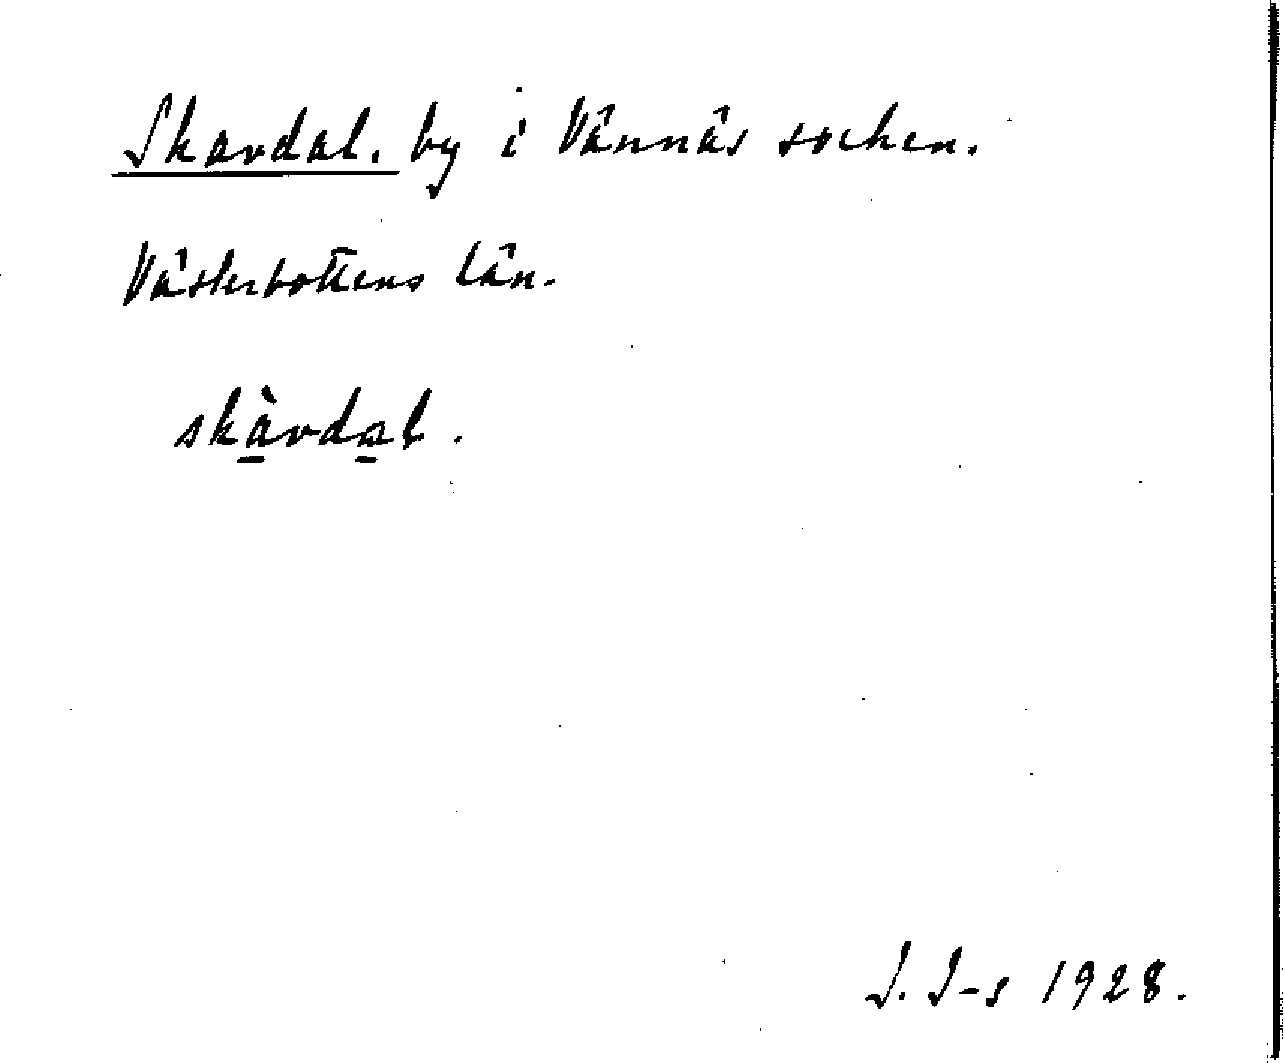 Skavdal. by i Vännäs socken.
Västerbottens län.
skàvdal.
J. J-s 1928.